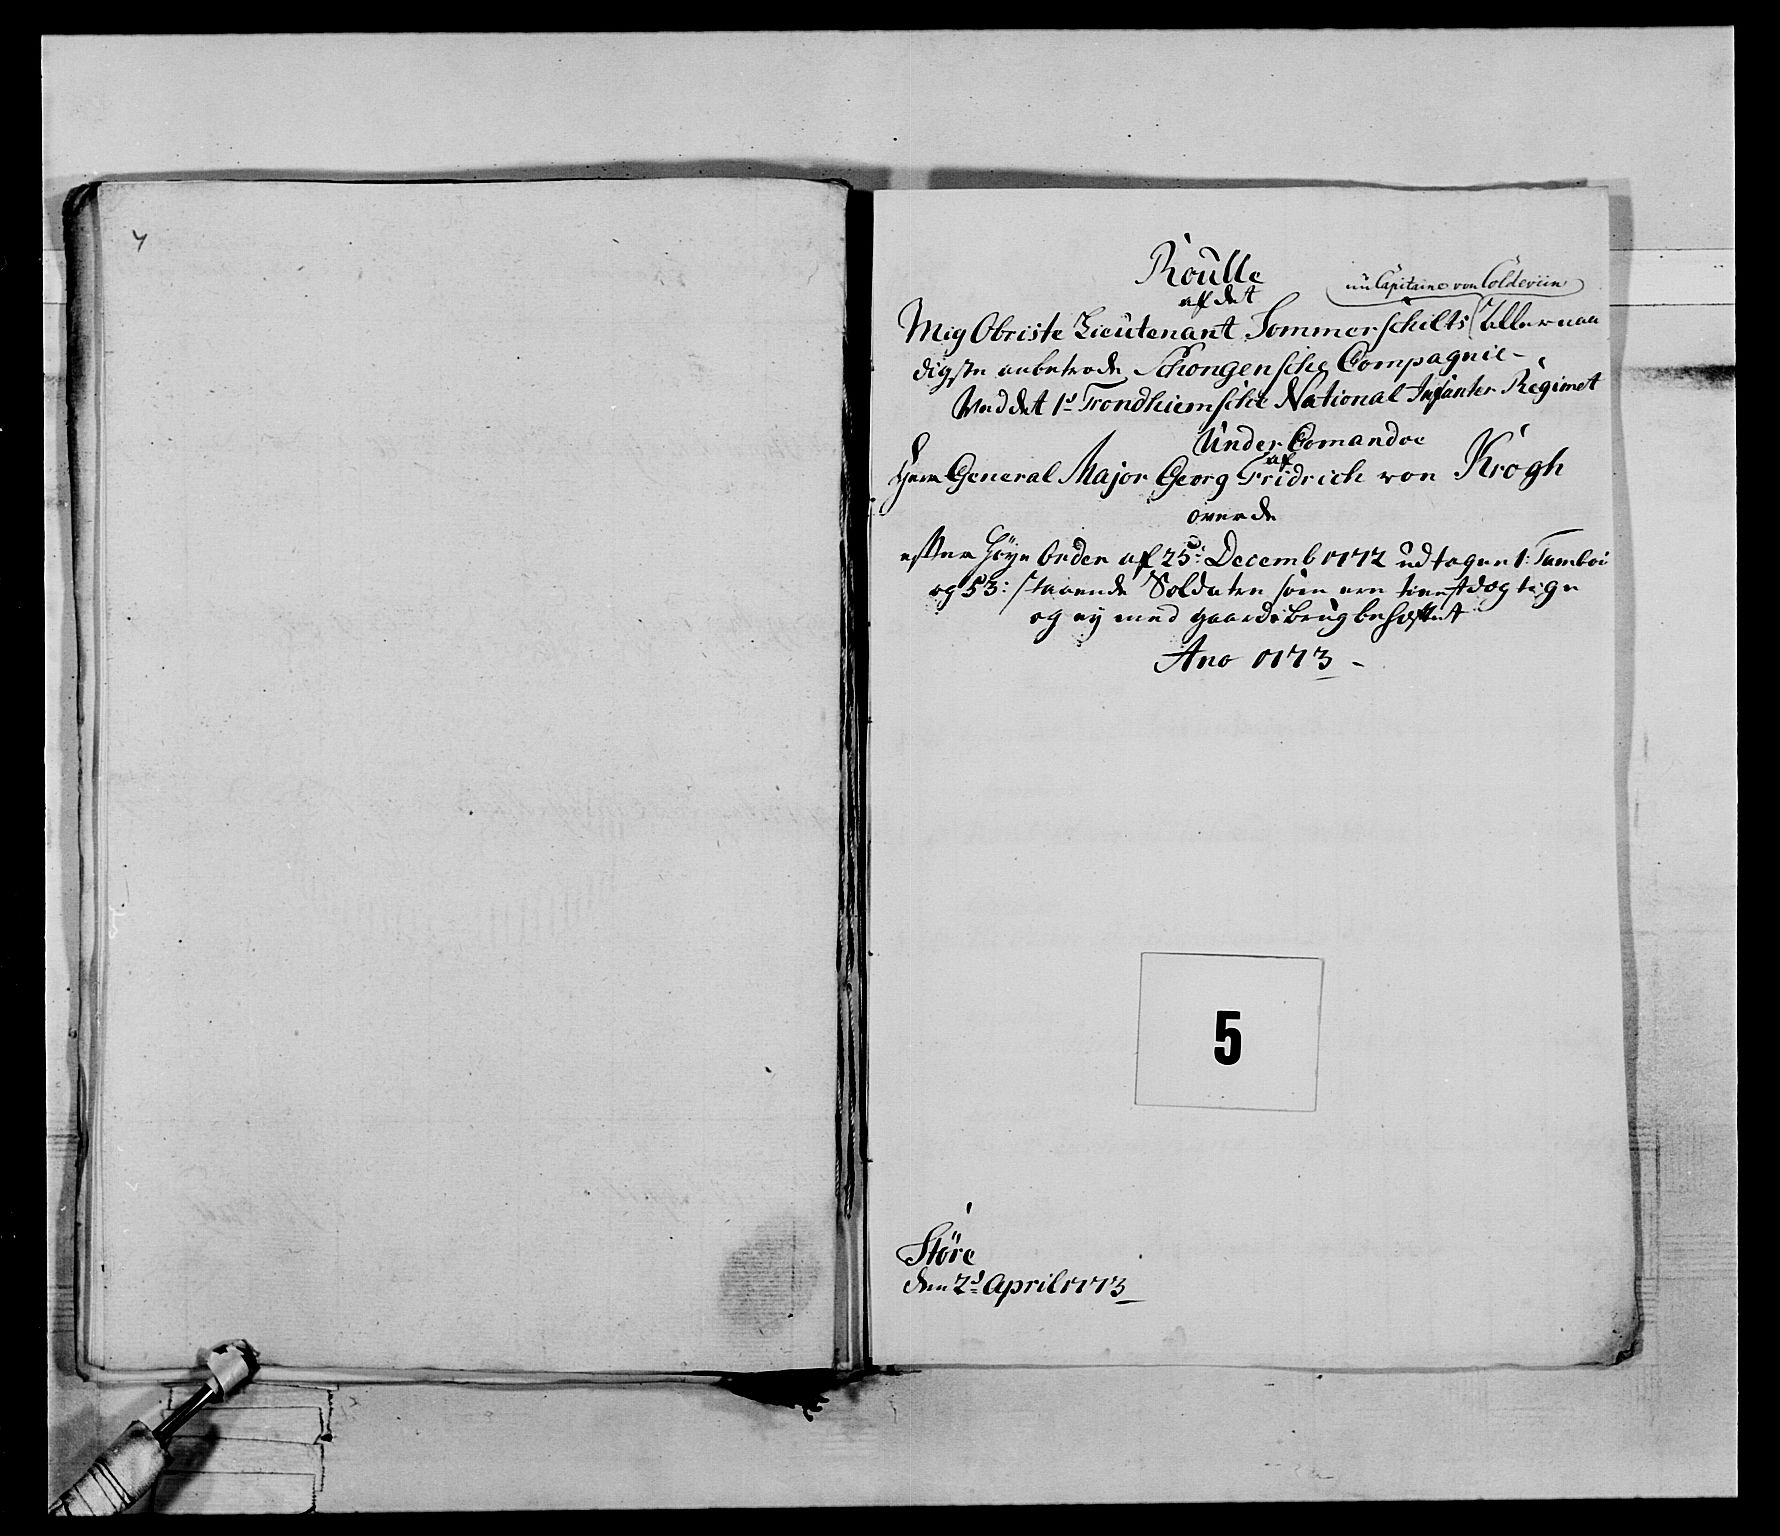 Roulle
af det
nu Capitaine von Coldevin
Mig Obriste Lieutenant Sommerschilts Allernaa
digste anbetrode Schongensche Compagnie
Ved det 1ste Trondhiemsche National Infanter Regimet
Under Comandoe
af
Herr General Major Georg Fridrich von Krogh
over de
efter høye Ordre af 25d Decemb 1772 udtagne 1: Tamboi
og 53: staaende Soldater som ere tienstdogtige
og ey med gaards brug behæftet
Ano 1773
5
Störe
den 2d April 1773